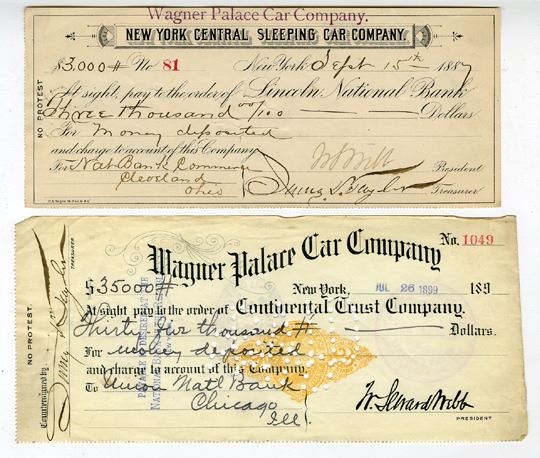 Wagner Palace Car Company.
NEW YORK CENTRAL SLEEPING CAR COMPANY.
$3000# No 81 New York Sept 15th 1887
At sight, pay to the order of Lincoln National Bank
Three thousand 00/100 Dollars
For Money deposited
and charge to account of this Company
For Nat Bank Commerce President
Cleveland
Ohio Treasurer
NO PROTEST
Wagner Palace Car Company
No. 1049
$35000# New York, JUL 26 1899 189
At sight pay to the order of Continental Trust Company.
Thirty five thousand # Dollars.
For money deposited
and charge to account of this Company.
To Union Natl Bank
Chicago
Ill
W. Seward Webb
PRESIDENT
NO PROTEST.
Countersigned by
TREASURER
PAYABLE IF DESIRED AT THE